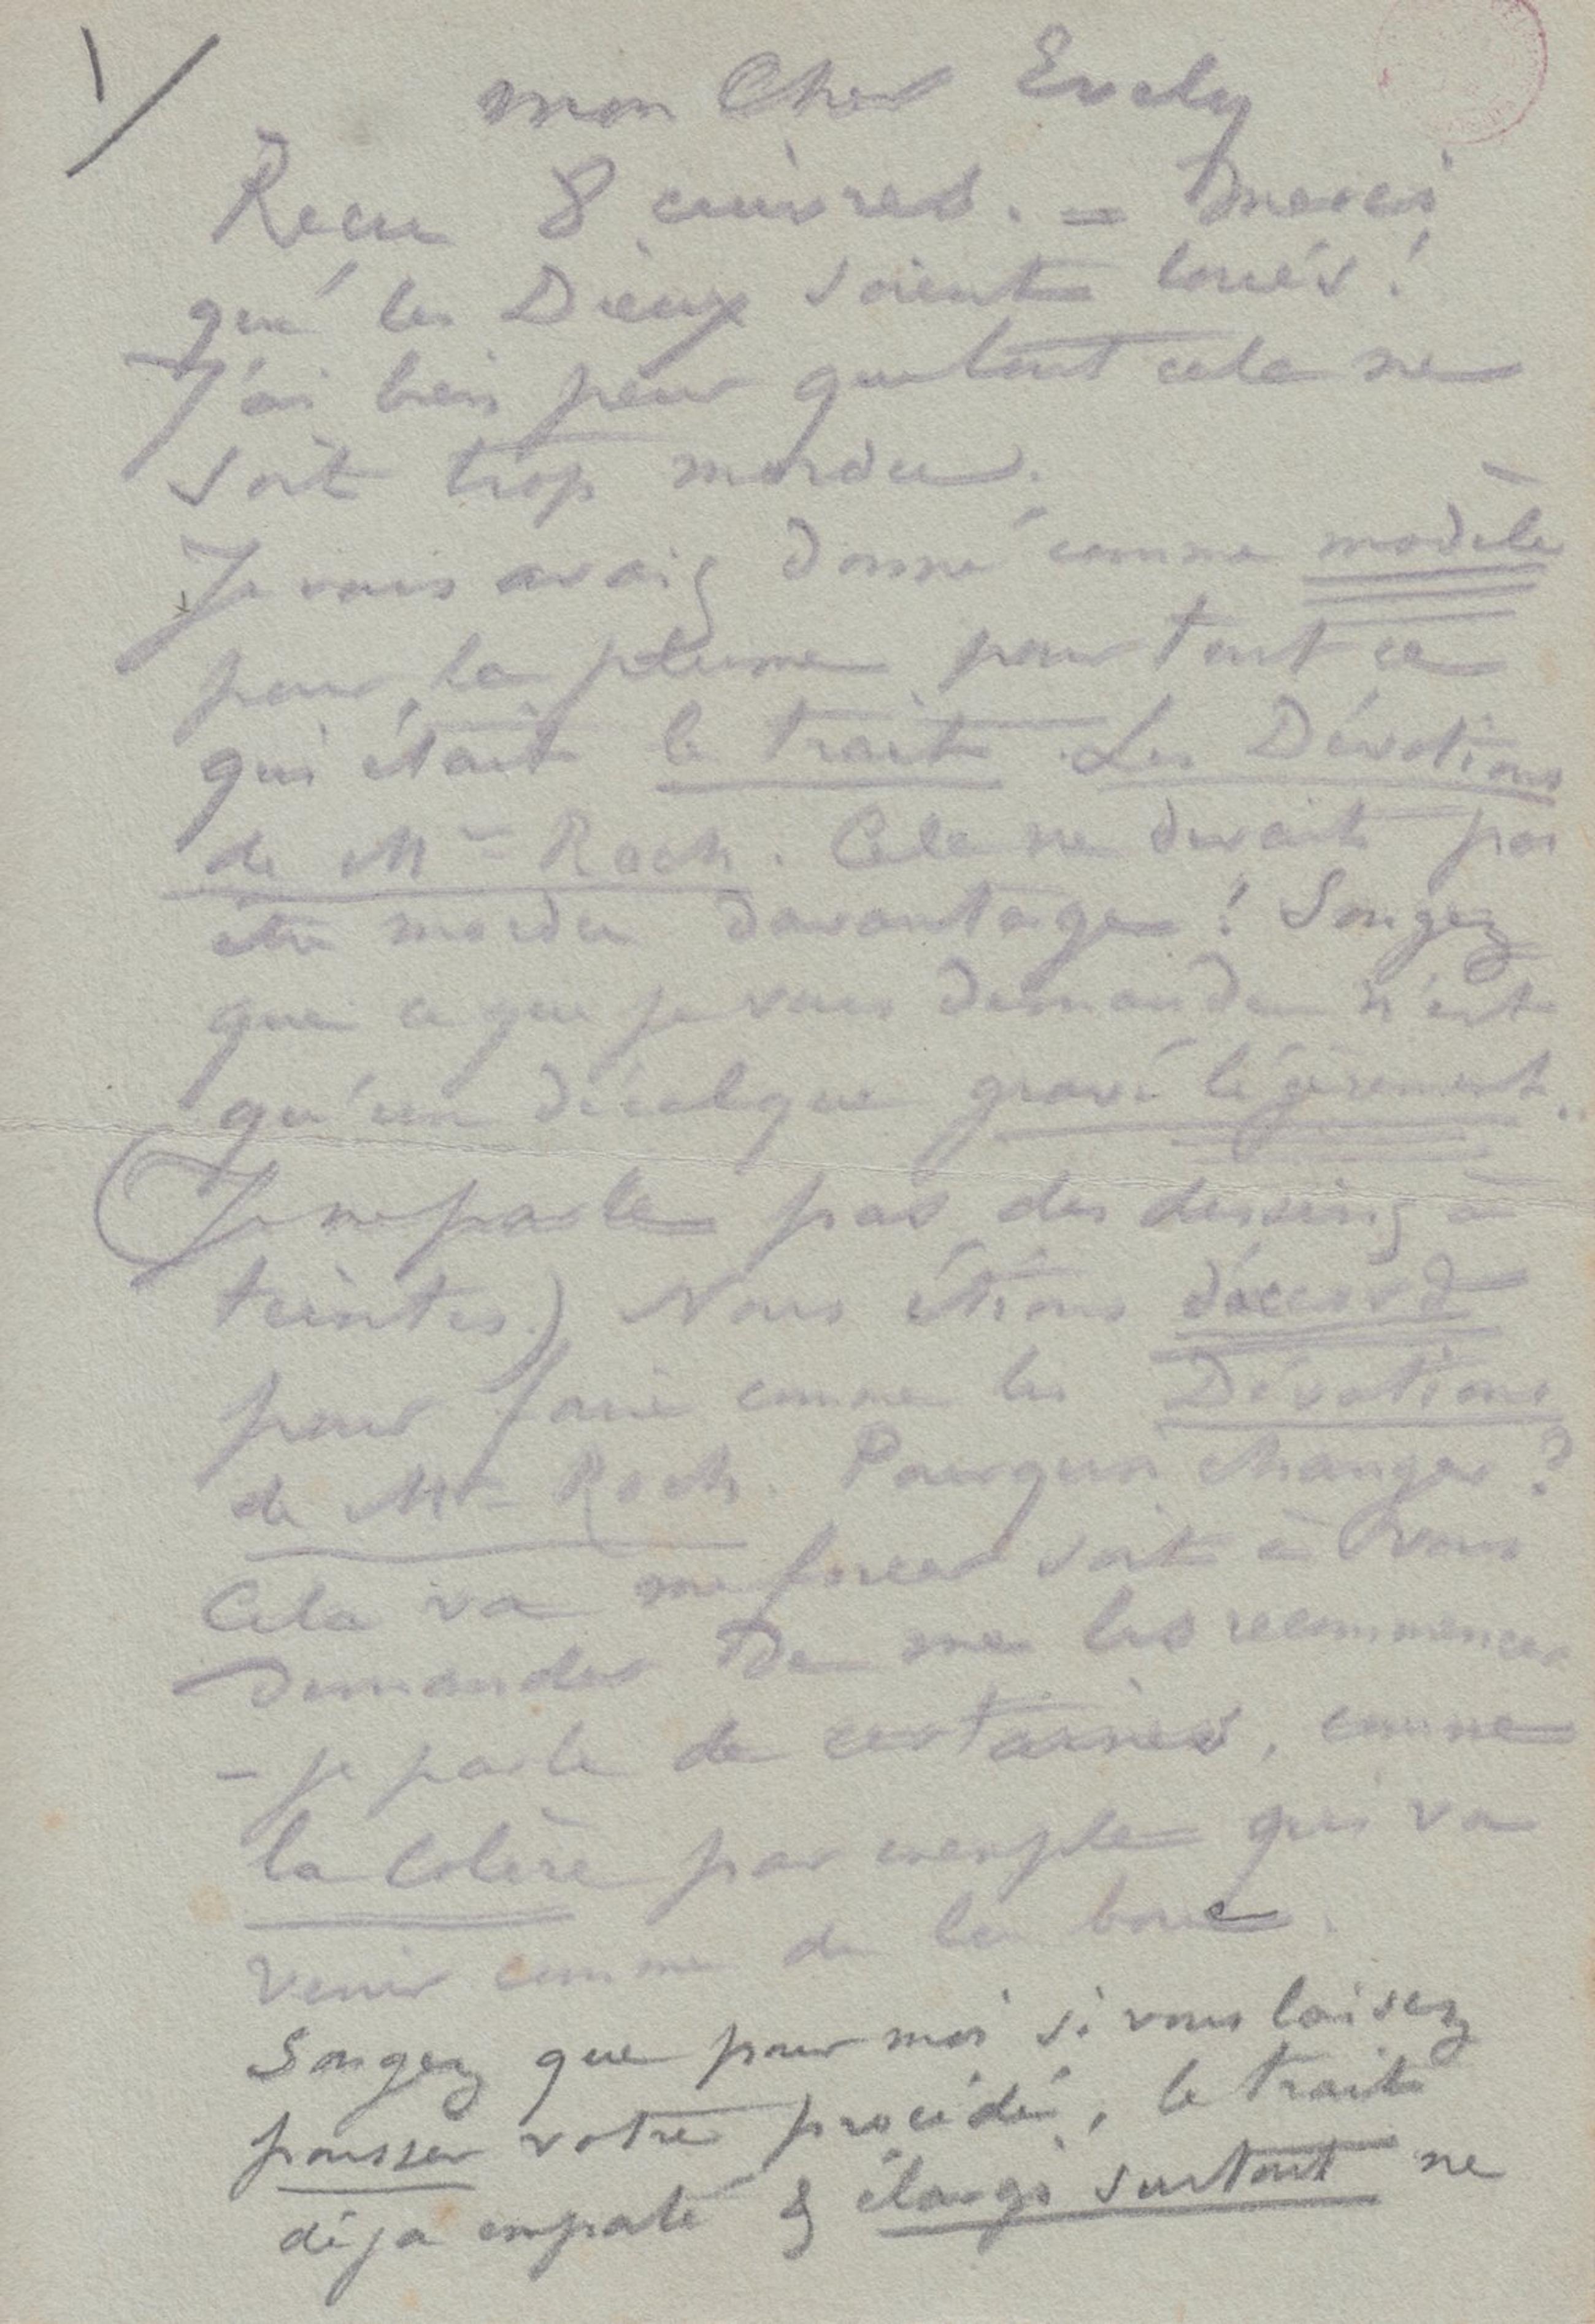 mon Cher Evely
Recu 8 cuivres. = Merci
que les Dieux soient loués!
J'ai bien peur que tout cela ne
soit trop mordu.
Je vous avais donné comme modèle
pour la plume pour tout ce
qui était le trait Les Dévotions
de Mr Roch. Cela ne devait pas
être mordu davantage! Songez
que ce que je vous demande n'est
qu'un décalque gravé légèrement..
(Je ne parle pas des dessins à
teintes.) Nous étions d'accord
pour faire comme les Dévotions
de Mr Roch. Pourquoi changer?
Cela va me forcer soit à vous
demander de me les recommencer
- je parle de certaines, comme
la Colère par exemple qui va
venir comme de la boue.
Songez que pour moi si vous laisez
pousser votre procédé, le trait
déjà empaté & élargi surtout ne